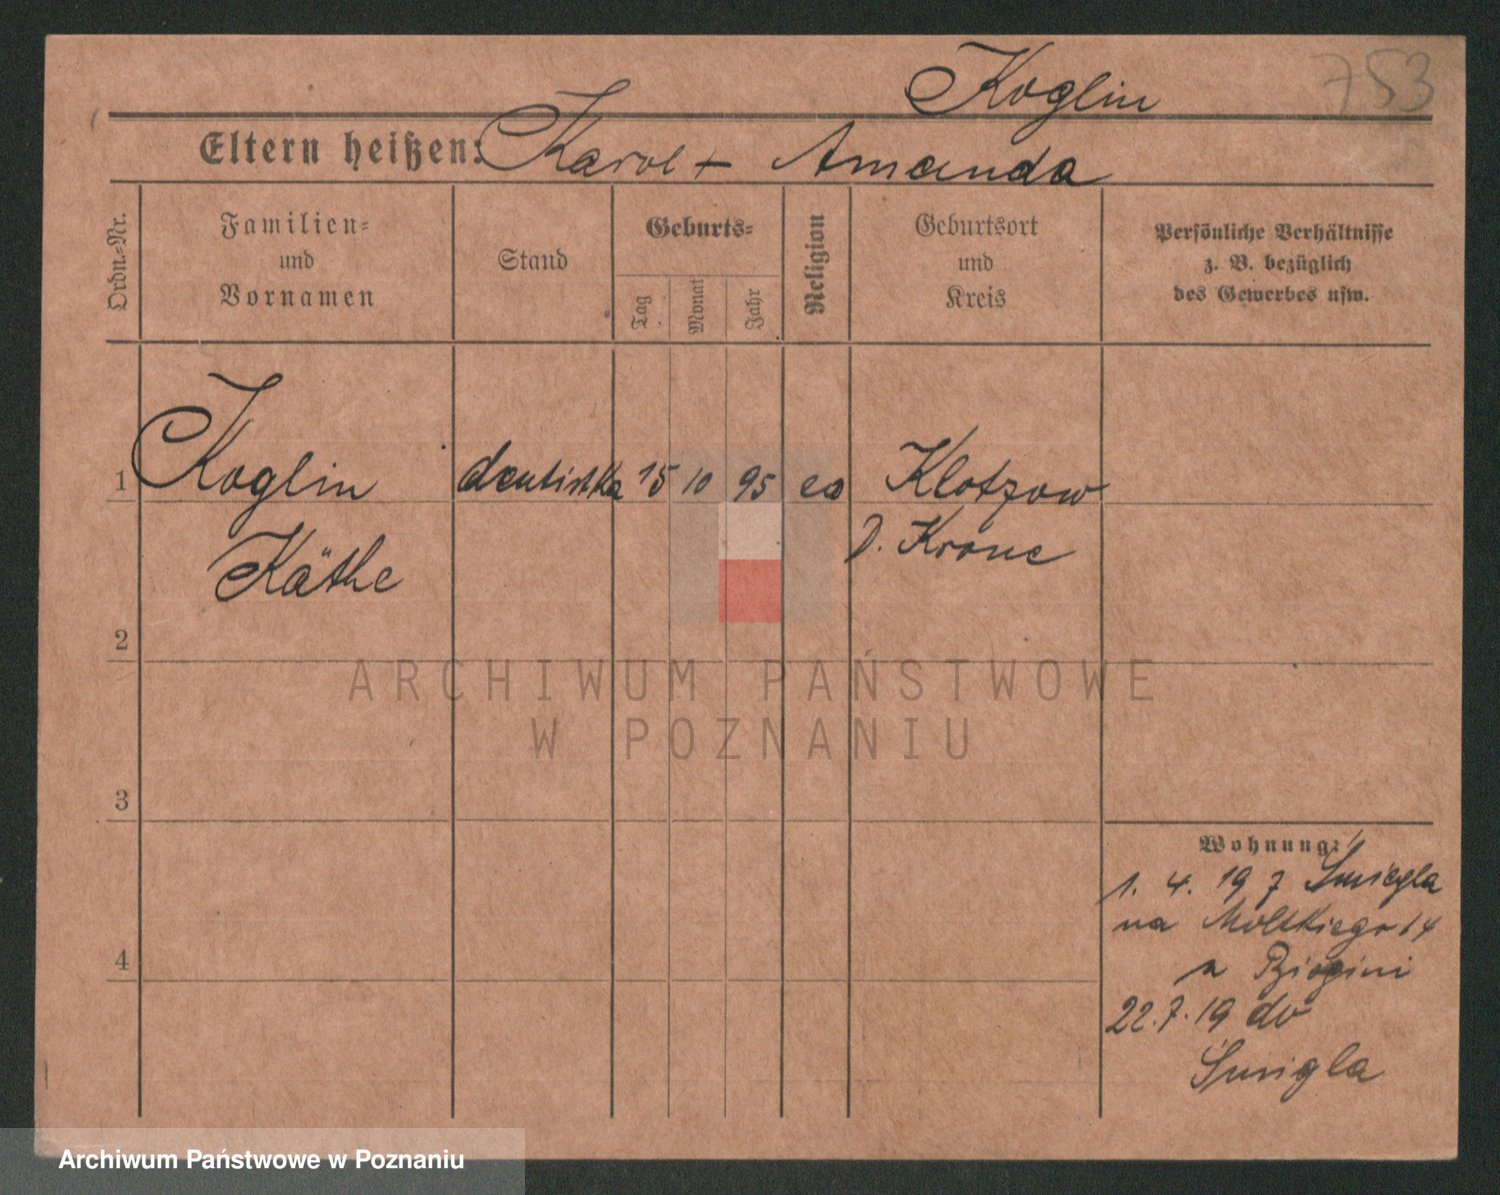 Koglin 753
Eltern heißen: Karol + Amanda
Ordn.-Nr.
Familien- und Vornamen
Stand
Geburts-
Tag Monat Jahr
Religion
Geburtsort und Kreis
Persönliche Verhältnisse
z. B. bezüglich
des Gewerbes usw.
1 Koglin dentistka 15 10 95 Klotzow
Käthe D. Krone
2
3
4
Wohnung:
1. 4. 19 z Śmiegla
na Moltkiego 14
22.7.19 do
Śmigla
ARCHIWUM PAŃSTWOWE
W POZNANIU
Archiwum Państwowe w Poznaniu